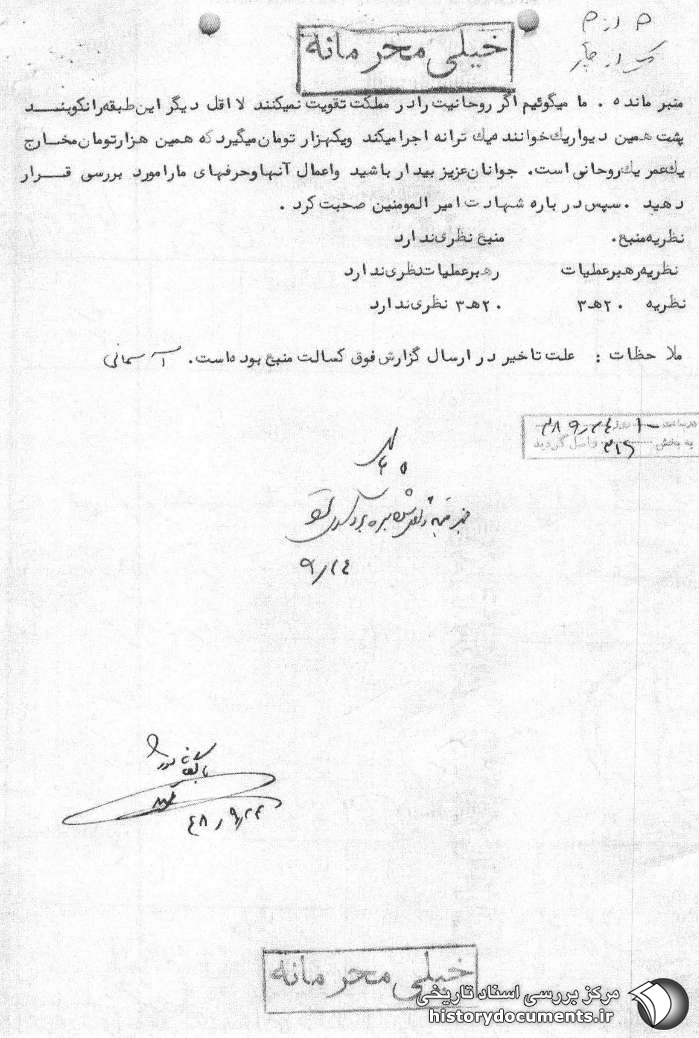 خیلی محرمانه
منبر مانده . ما میگوئیم اگر روحانیت را در مملکت تقویت نمیکنند لااقل دیگر این طبقه را نکوبنـــد
پشت همین دیوار یك خواننده یك ترانه اجرا میکند ویکهزار تومان میگیرد که همین هزارتومان مخــارج
یك عمر یك روحانی است. جوانان عزیز بیدار باشید واعمال آنها وحرفهای ما را مورد بررسی قـــرار
دهید .سپس در باره شهادت امیر المومنین صحبت کرد .
نظریه منبع. منبع نظری ندارد
نظریه رهبر عملیات رهبر عملیات نظری ندارد
نظریه ۲۰هـ۳ ۲۰هـ۳ نظری ندارد
ملاحظات : علت تاخیر در ارسال گزارش فوق کسالت منبع بوده است. آسمانی
به بخش ۳۱۶ واصل گردید
۹/۲۴
۴۸/۹/۲۴
خیلی محرمانه
مرکز بررسی اسناد تاریخی
historydocuments.ir